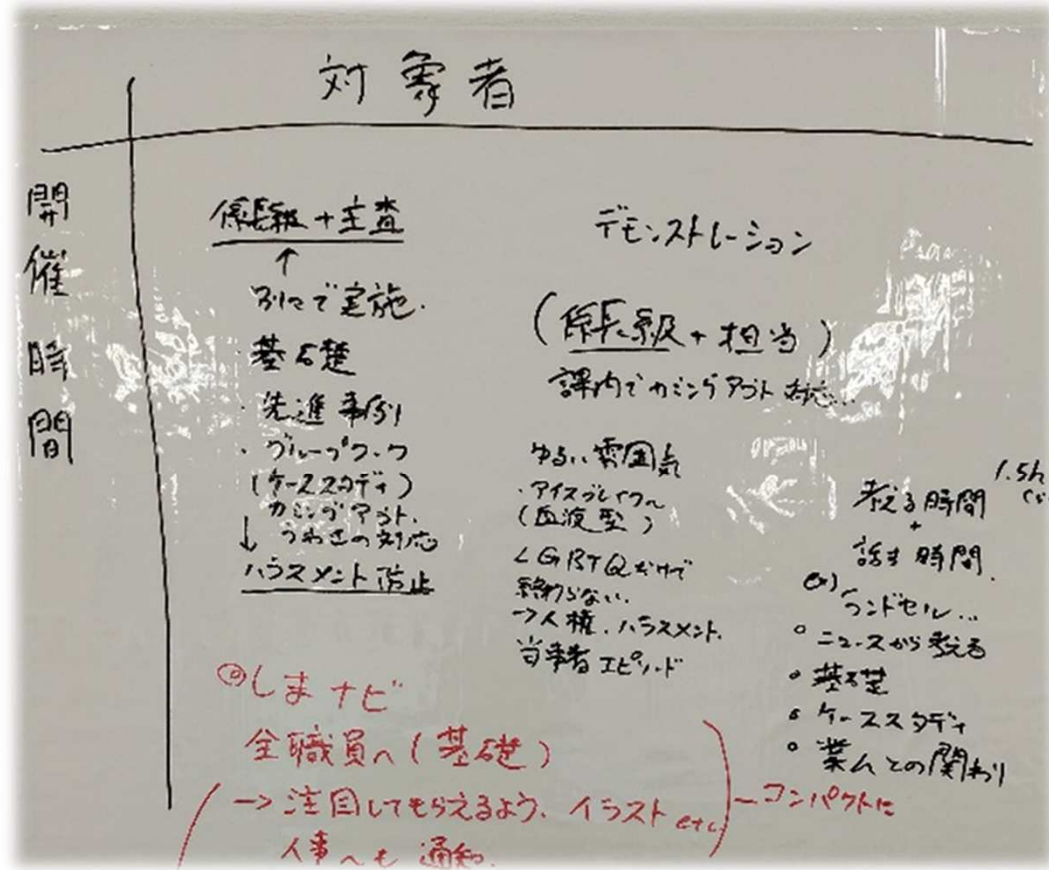 対象者
開催時間
係長級+主査
↑
別々で実施.
・基礎
・先進事例
・グループワーク
(ケーススタディ)
カミングアウト.
↓うわさの対応
ハラスメント防止
デモンストレーション
(係長級+担当)
課内でカミングアウト対応...
ゆるい雰囲気
・アイスブレイク
(血液型)
LGBTQだけで
終わらない.
→人権.ハラスメント.
当事者エピソード
1.5h
考える時間
+
話す時間.
ex)ランドセル...
○ニュースから考える
○基礎
○ケーススタディ
○業務との関わり
しまナビ
全職員へ(基礎)
→注目してもらえるよう.イラストetc
人事へも通知.
コンパクトに